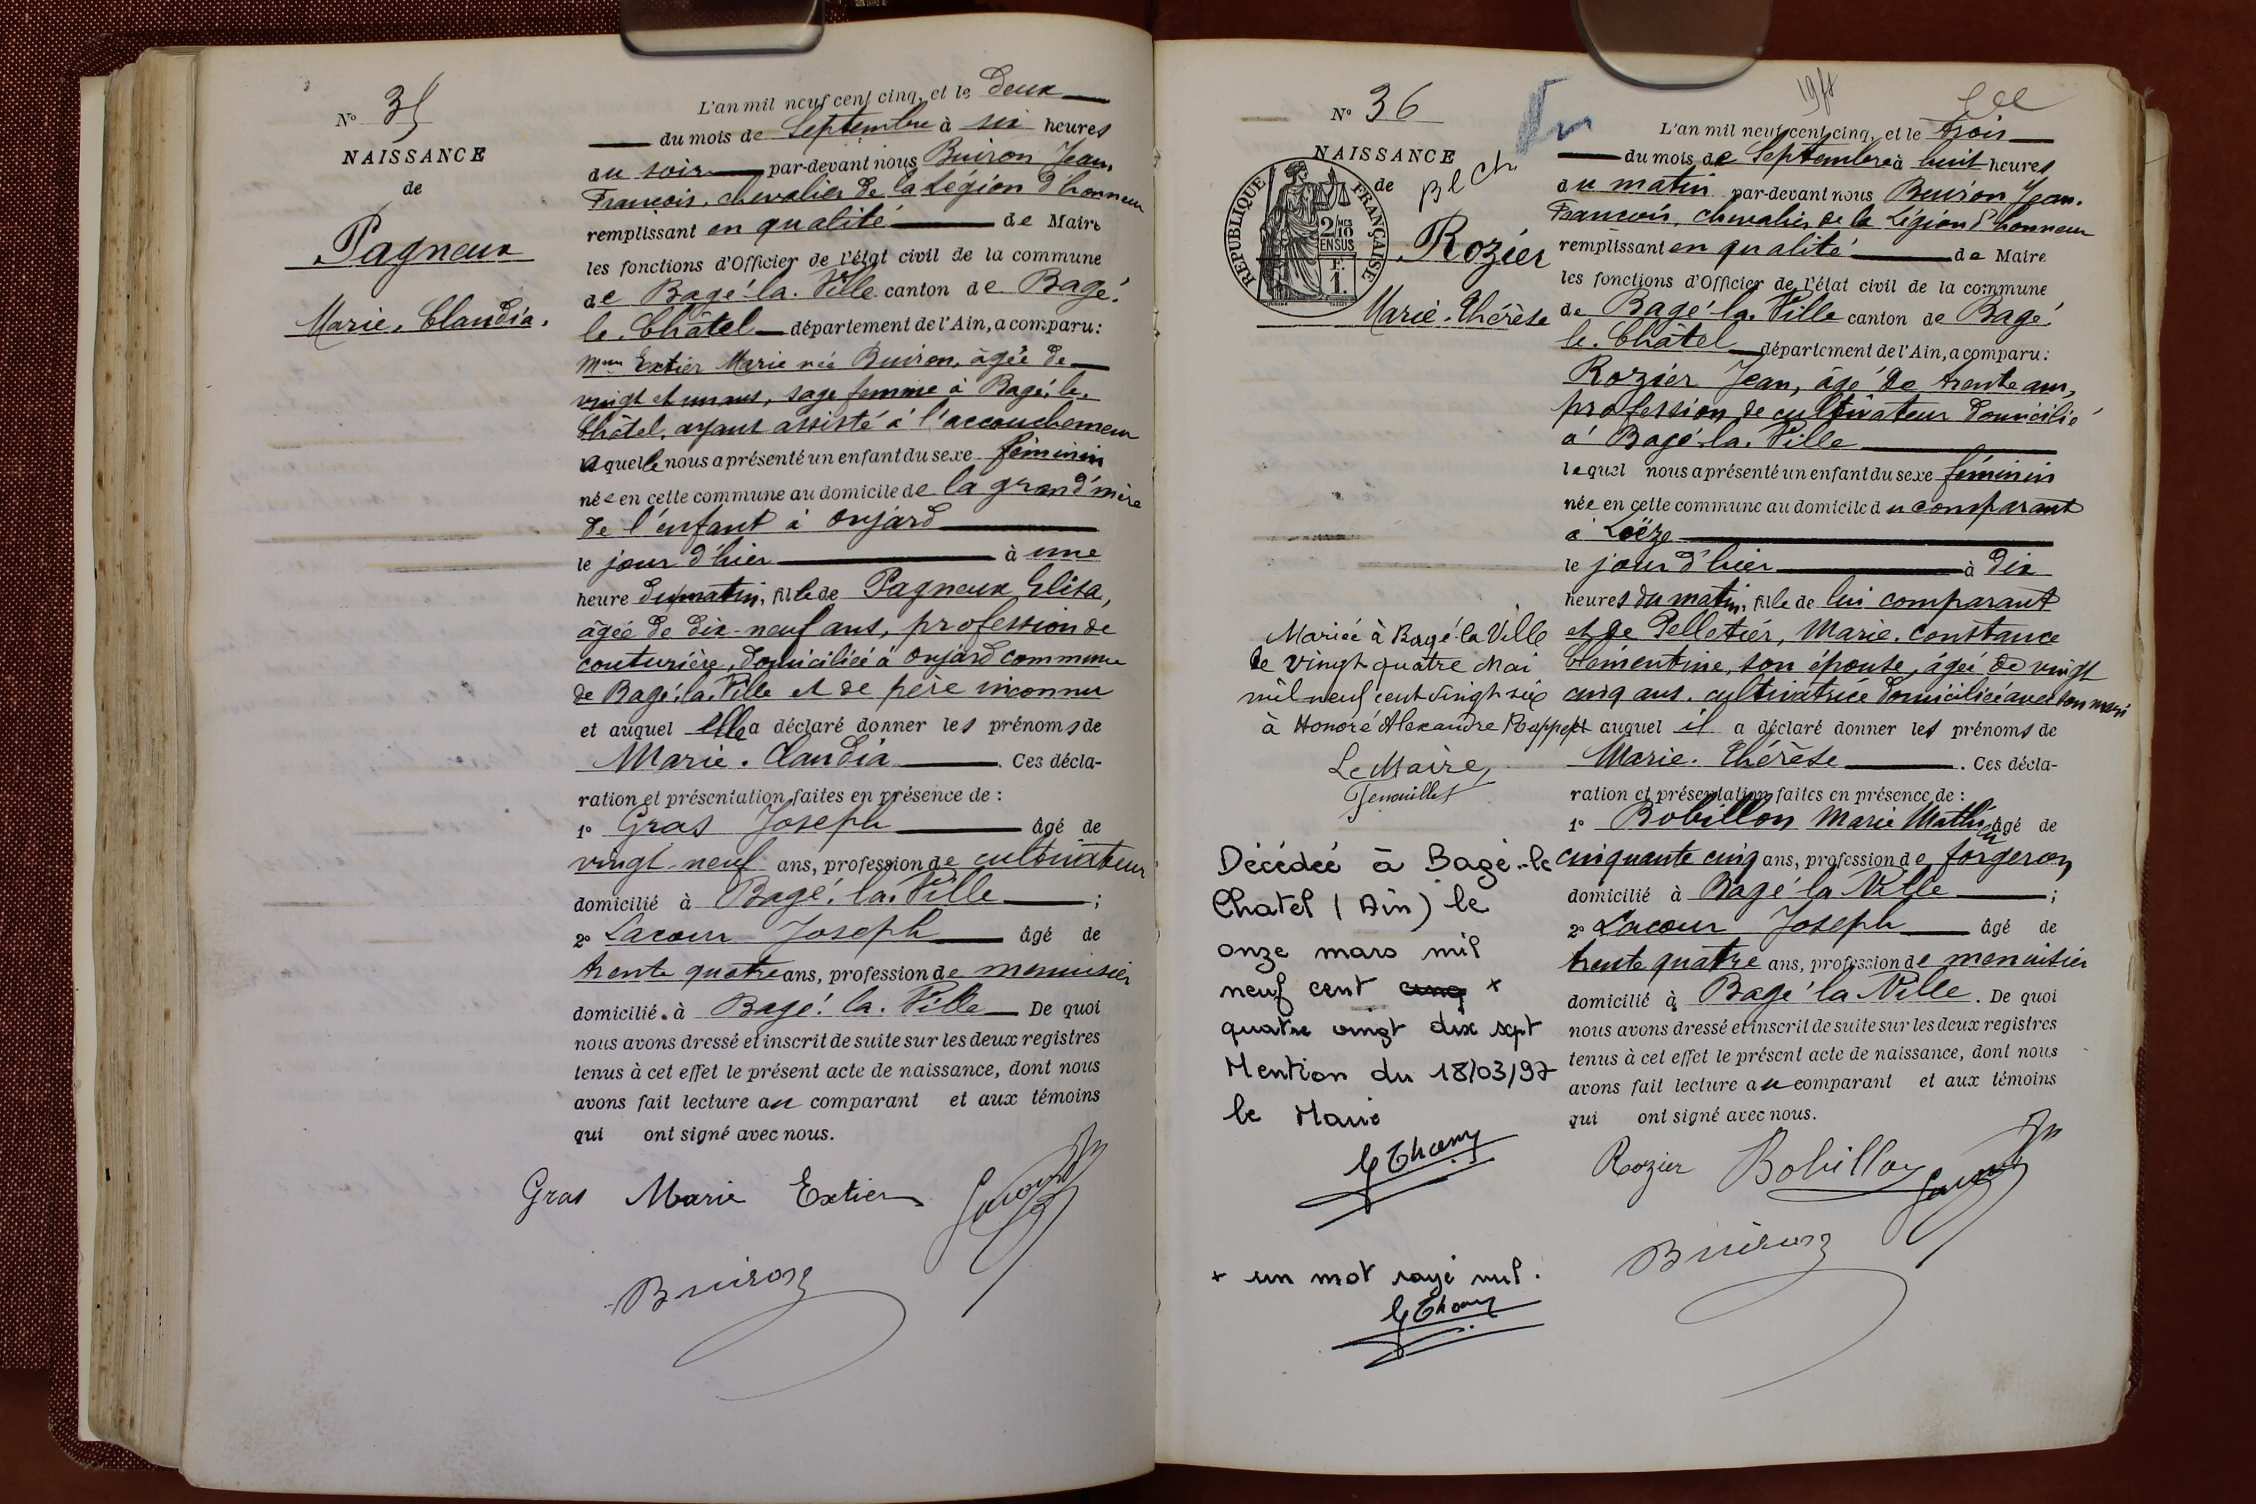 N° 35
NAISSANCE
de
Pagneux
Marie. Claudia.
L'an mil neuf cent cinq, et le deux
du mois de Septembre à six heures
du soir par-devant nous Buiron Jean
François, chevalier de la Légion d'honneur
remplissant en qualité de Maire
les fonctions d'Officier de l'état civil de la commune
de Bagé. la. Ville canton de Bagé.
le. Châtel département de l'Ain, a comparu :
Mme Extier Marie née Buiron, âgée de
vingt et un ans, sage femme à Bagé. le.
Châtel, ayant assisté à l'accouchement
laquelle nous a présenté un enfant du sexe féminin
née en cette commune au domicile de la grand'mère
de l'enfant à Onjard
le jour d'hier à une
heure du matin, fille de Pagneux Elisa,
âgée de dix-neuf ans, profession de
couturière, domiciliée à Onjard commune
de Bagé. la. Ville et de père inconnu
et auquel elle a déclaré donner les prénoms de
Marie. Claudia . Ces décla-
ration et présentation faites en présence de :
1° Gras Joseph âgé de
vingt-neuf ans, profession de cultivateur
domicilié à Bagé. la. Ville ;
2° Lacour Joseph âgé de
trente quatre ans, profession de menuisier
domicilié à Bagé. la. Ville De quoi
nous avons dressé et inscrit de suite sur les deux registres
tenus à cet effet le présent acte de naissance, dont nous
avons fait lecture au comparant et aux témoins
qui ont signé avec nous.
Gras Marie Extier Lacour
Buiron
N° 36
NAISSANCE
de
RÉPUBLIQUE FRANÇAISE
2/10 EN SUS
F. 1.
Rozier
Marie. Thérèse
Mariée à Bagé-la-Ville
le vingt-quatre Mai
mil neuf cent vingt-six
à Honoré Alexandre Rappet
Le Maire,
Décédée à Bagé-le
Chatel (Ain) le
onze mars mil
neuf cent cinq x
quatre vingt dix sept
Mention du 18/03/97
le Maire
+ un mot rayé nul.
1978
L'an mil neuf cent cinq, et le trois
du mois de Septembre à huit heures
du matin par-devant nous Buiron Jean.
François, chevalier de la Légion d'honneur
remplissant en qualité de Maire
les fonctions d'Officier de l'état civil de la commune
de Bagé. la. Ville canton de Bagé.
le. Châtel département de l'Ain, a comparu :
Rozier Jean, âgé de trente ans,
profession de cultivateur domicilié
à Bagé. la. Ville
lequel nous a présenté un enfant du sexe féminin
née en cette commune au domicile du comparant
à Loëze
le jour d'hier à dix
heures du matin, fille de lui comparant
et de Pelletier, Marie. Constance
Clémentine, son épouse, âgée de vingt
cinq ans. cultivatrice domiciliée avec son mari
et auquel il a déclaré donner les prénoms de
Marie. Thérèse . Ces décla-
ration et présentation faites en présence de :
1° Bobillon Marie Mathieu âgé de
cinquante cinq ans, profession de forgeron
domicilié à Bagé la Ville ;
2° Lacour Joseph âgé de
trente quatre ans, profession de menuisier
domicilié à Bagé la Ville. De quoi
nous avons dressé et inscrit de suite sur les deux registres
tenus à cet effet le présent acte de naissance, dont nous
avons fait lecture au comparant et aux témoins
qui ont signé avec nous.
Rozier Bobillon Lacour
Buiron